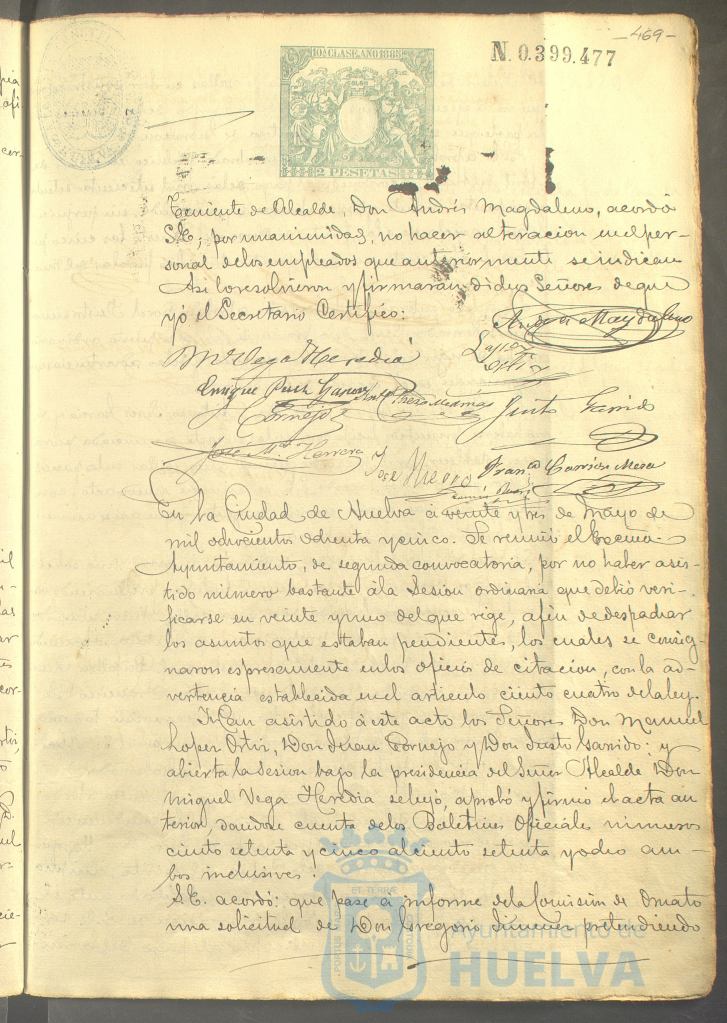 -469-
10ª CLASE. AÑO 1885
N. 0.399.477
2 PESETAS
Teniente de Alcalde, Don Andrés Magdaleno, acordó
S.E; por unanimidad, no hacer alteracion en el per-
sonal de los empleados que anteriormente se indican
Asi lo resolvieron y firmarán dichos Señores de que
yó el Secretario Certifico:
Andrés Magdaleno
M. Vega Heredia
Lopez Ortiz
Enrique
Cornejo
Justo Garrido
José Mª Herrera
José Nieves
Franco Carrion Mesa
En la Ciudad de Huelva á veinte y tres de Mayo de
mil ochocientos ochenta y cinco. Se reunió el Excmo
Ayuntamiento, de segunda convocatoria, por no haber asis-
tido número bastante á la Sesion ordinaria que debió veri-
ficarse en veinte y uno del que rige, afin de despachar
los asuntos que estaban pendientes, los cuales se consig-
naron espresamente en los oficios de citacion, con la ad-
vertencia establecida en el articulo ciento cuatro de la ley.
Han asistido á este acto los Señores Don Manuel
Lopez Ortiz, Don Juan Cornejo y Don Justo Garrido: y
abierta la Sesion bajo la presidencia del Señor Alcalde Don
Miguel Vega Heredia se leyó, aprobó y firmó el acta an
terior, dandose cuenta de los Boletines Oficiales números
ciento setenta y cinco al ciento setenta y ocho am-
bos inclusives.
S.E. acordó: que pase á informe de la Comisión de Ornato
una solicitud de Don Gregorio Jimenez pretendiendo
Ayuntamiento de
HUELVA